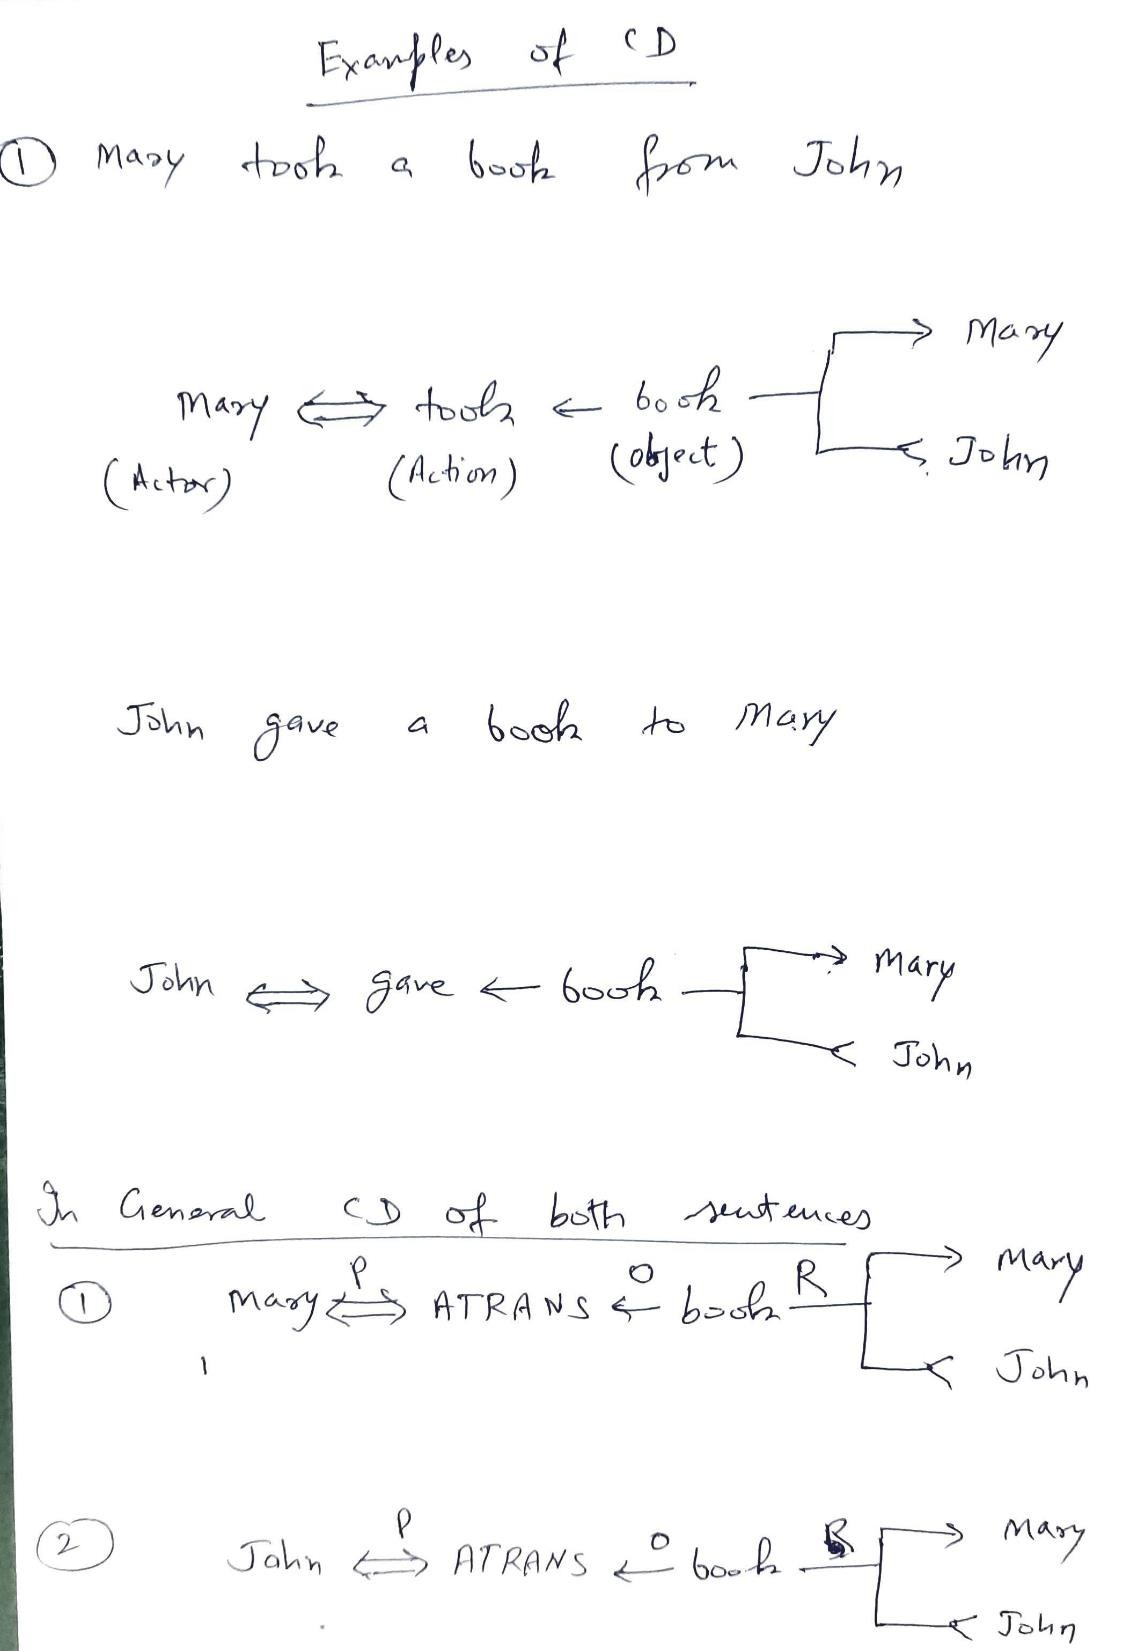 Examples of CD
① Mary took a book from John
Mary
Mary ⇔ took ← book
(Actor) (Action) (object)
John
John gave a book to Mary
Mary
John ⇔ gave ← book
John
In General CD of both sentences
Mary
① Mary P⇔ ATRANS O← book R
John
② John P⇔ ATRANS O← book R
Mary
John